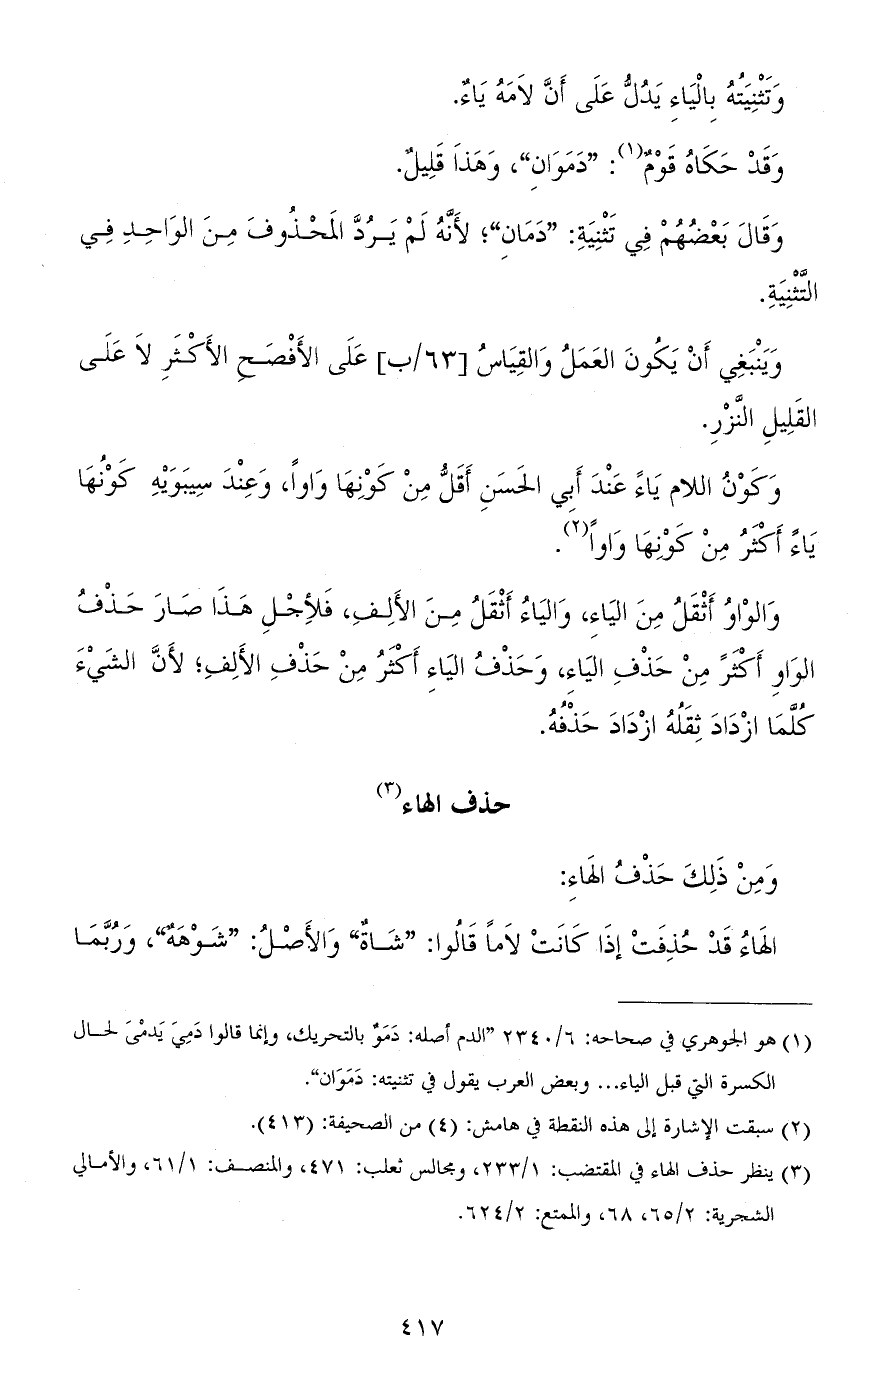 وَتَثْنِيَتُهُ بِالْيَاءِ يَدُلُّ عَلَى أَنَّ لاَمَهُ يَاءٌ.
وَقَدْ حَكَاهُ قَوْمٌ(١): ”دَمَوَانِ“، وَهَذَا قَلِيلٌ.
وَقَالَ بَعْضُهُمْ فِي تَثْنِيَةِ: ”دَمَانِ“؛ لأَنَّهُ لَمْ يَـرُدَّ المَحْـذُوفَ مِـنَ الوَاحِـدِ فِـي
التَّثْنِيَةِ.
وَيَنْبَغِي أَنْ يَكُونَ العَمَلُ وَالقِيَاسُ [٦٣/ب] عَلَى الأَفْصَـحِ الأَكْـثَرِ لاَ عَلَـى
القَلِيلِ النَّزْرِ.
وَكَوْنُ اللام يَاءً عَنْدَ أَبِي الحَسَنِ أَقَلُّ مِنْ كَوْنِهَا وَاواً، وَعِنْدَ سِيبَوَيْهِ كَوْنُهَا
يَاءً أَكْثَرُ مِنْ كَوْنِهَا وَاواً(٢).
وَالوْاوُ أَثْقَلُ مِنَ اليَاءِ، وَاليَاءُ أَثْقَلُ مِـنَ الأَلِـفِ، فَلأَجْـلِ هَـذَا صَـارَ حَـذْفُ
الوَاوِ أَكْثَرَ مِنْ حَذْفِ اليَاءِ، وَحَذْفُ اليَاءِ أَكْثَرُ مِنْ حَذْفِ الأَلِفِ؛ لأَنَّ الشَيْءَ
كُلَّمَا ازْدَادَ ثِقَلُهُ ازْدَادَ حَذْفُهُ.
حذف الهاء(٣)
وَمِنْ ذَلِكَ حَذْفُ الهَاءِ:
الهَاءُ قَدْ حُذِفَتْ إِذَا كَانَتْ لاَماً قَالُوا: ”شَـاةٌ“ وَالأَصْـلُ: ”شَـوْهَةٌ“، وَرُبَّمَـا
(١) هو الجوهري في صحاحه: ٢٣٤٠/٦ ”الدم أصله: دَمَوٌ بالتحريك، وإنما قالوا دَمِيَ يَدمْىَ لحـال
الكسرة التي قبل الياء... وبعض العرب يقول في تثنيته: دَمَوَان“.
(٢) سبقت الإشارة إلى هذه النقطة في هامش: (٤) من الصحيفة: (٤١٣).
(٣) ينظر حذف الهاء في المقتضب: ٢٣٣/١، ومجالس ثعلب: ٤٧١، والمنصـف: ٦١/١، والأمـالي
الشجرية: ٦٥/٢، ٦٨، والممتع: ٦٢٤/٢.
٤١٧